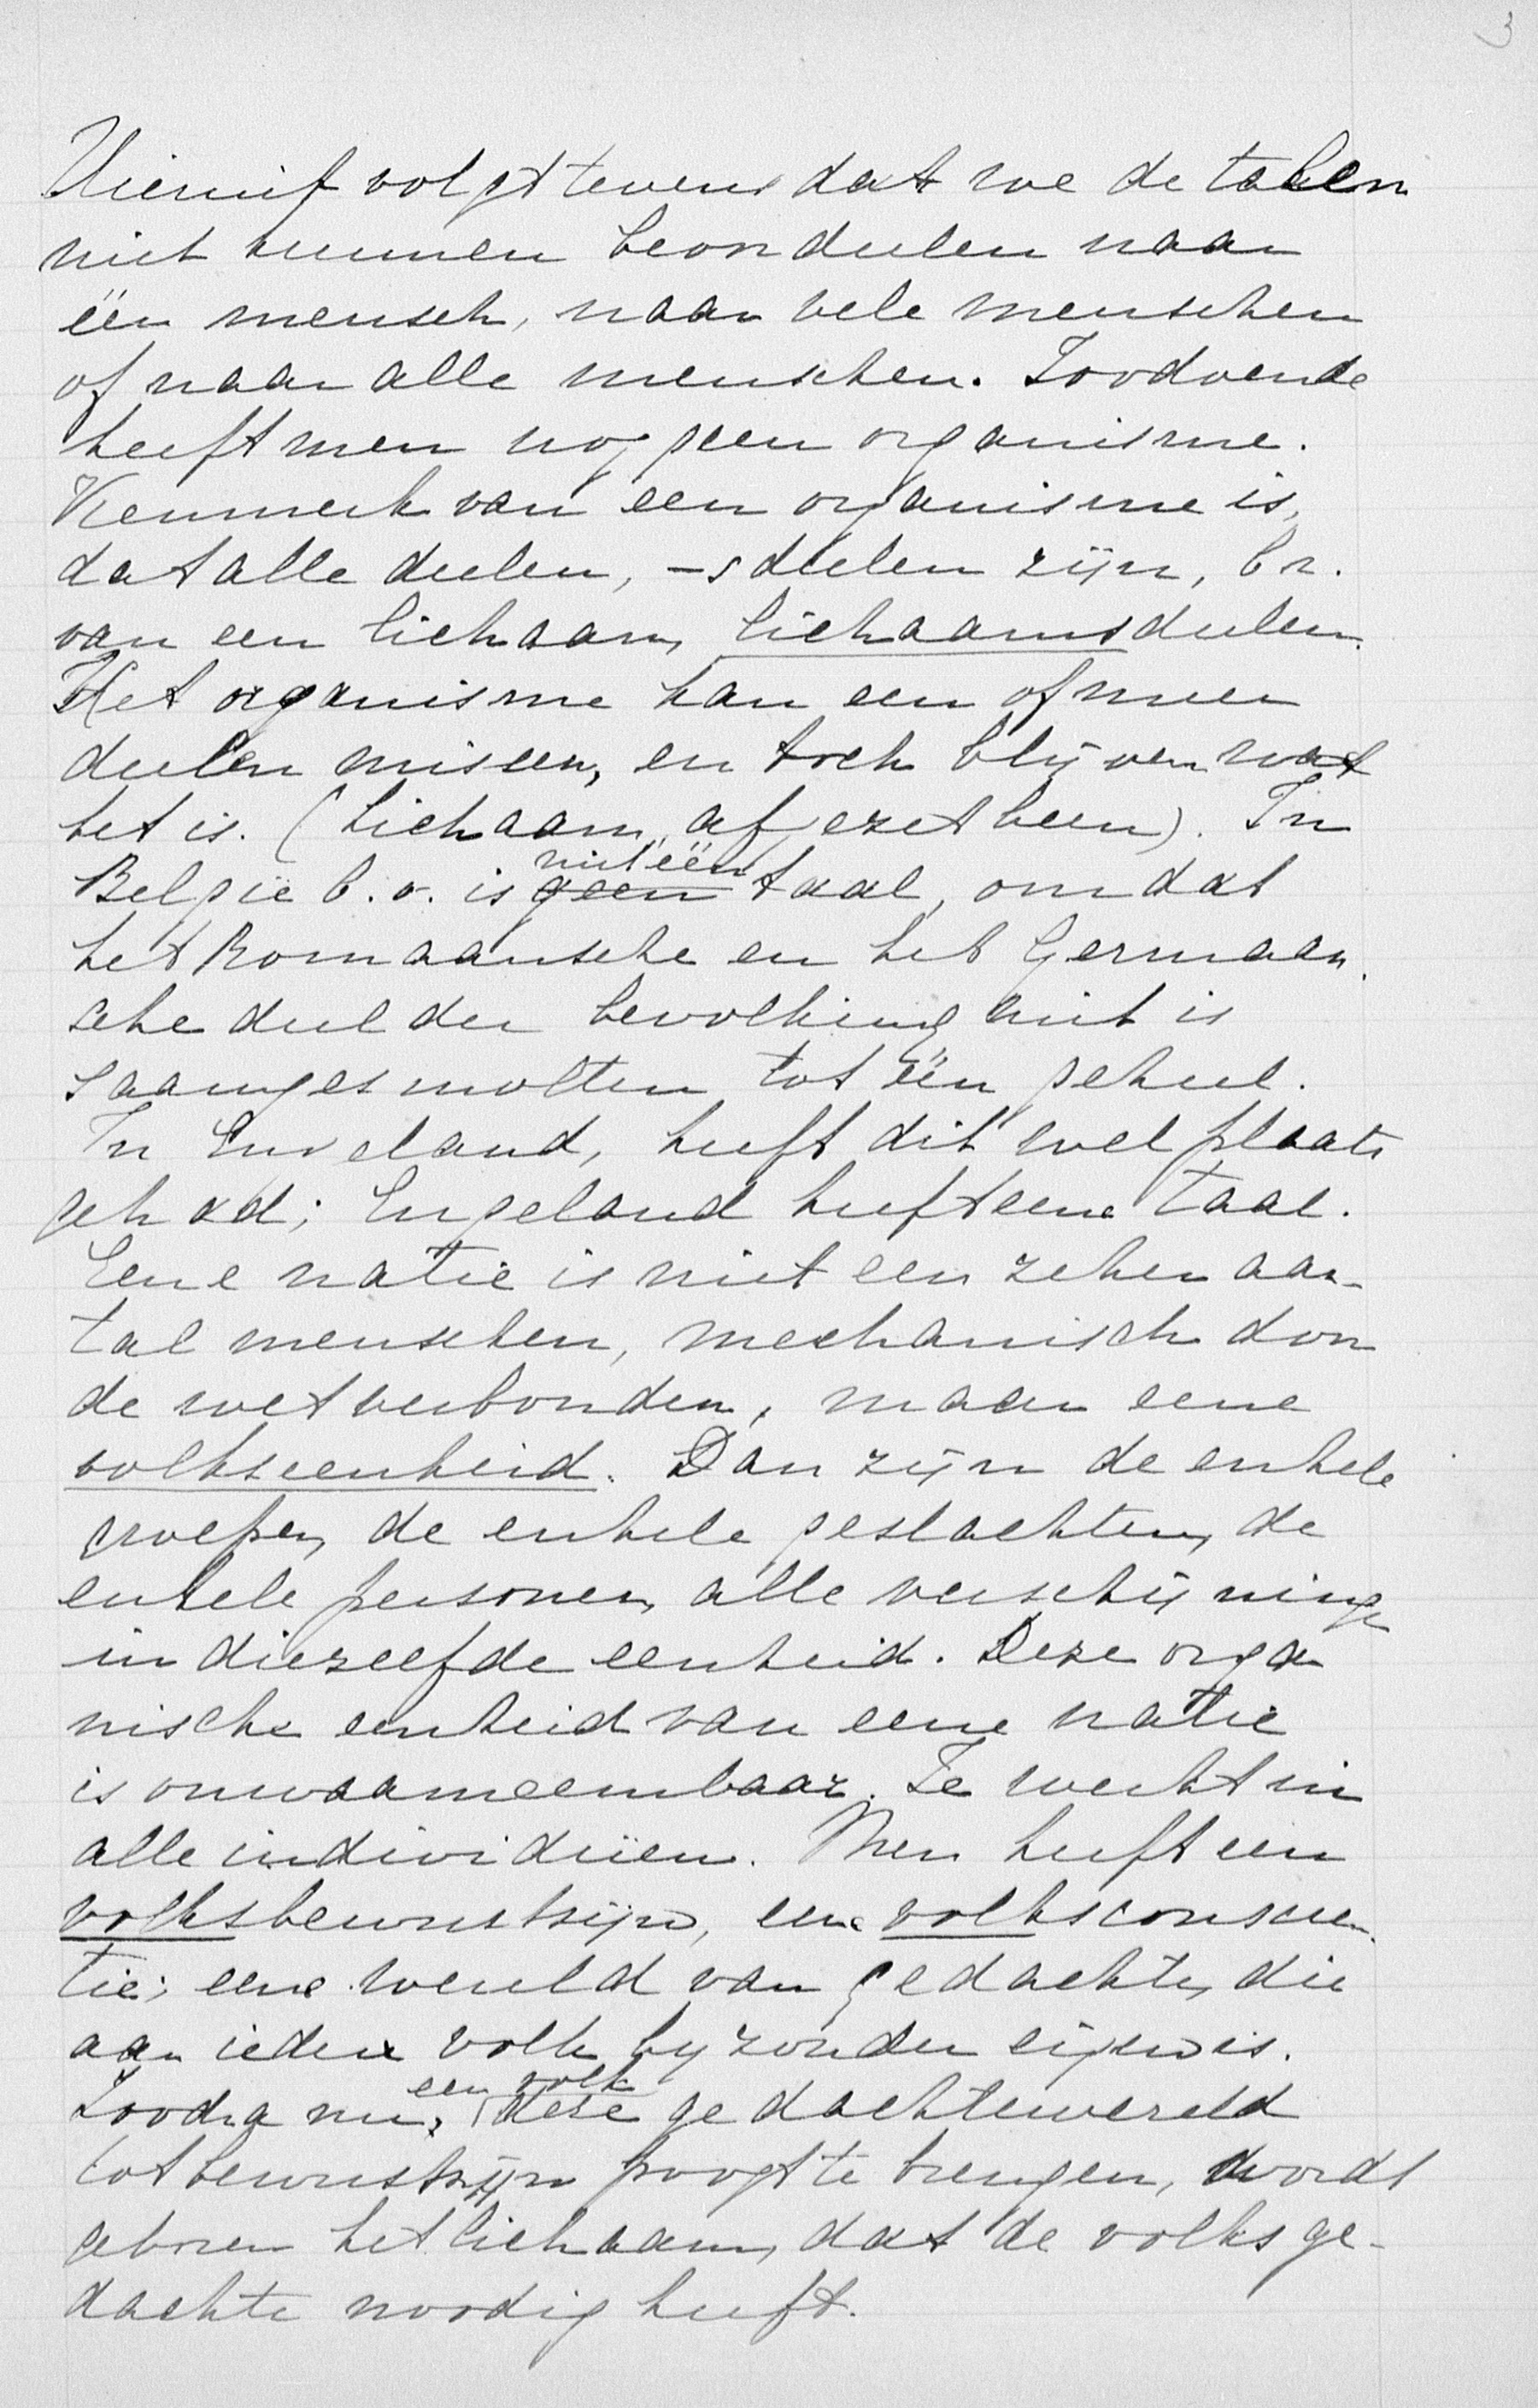 3
Hieruit volgt tevens dat we de talen
niet kunnen beoordeelen naar
één mensch, naar vele menschen
of naar alle menschen. Zoodoende
heeft men nog geen organisme.
Kenmerk van een organisme is,
dat alle deelen, -sdeelen zijn, bv.
van een lichaam, lichaamsdeelen.
Het organisme kan een of meer
deelen missen, en toch blijven wat
het is. (Lichaam, afgezet been). In
België b.v. is geen niet één taal, omdat
het Romaansche en het Germaan-
sche deel der bevolking niet is
saamgesmolten tot één geheel.
In Engeland, heeft dit wel plaats
gehad; Engeland heeft eene taal.
Eene natie is niet een zeker aan-
tal menschen, mechanisch door
de wet verbonden, maar eene
volkseenheid. Dan zijn de enkele
groepen, de enkele geslachten, de
enkele personen, alle verschijningen
in diezelfde eenheid. Deze orga
nische eenheid van eene natie
is onwaarneembaar. Ze werkt in
alle individuën. Men heeft een
volksbewustzijn, eene volksconscien-
tie; eene wereld van gedachten, die
aan ieder volk byzonder eigen is.
Zoodra nu, een volk deze gedachtewereld
tot bewustzijn poogt te brengen, wordt
geboren het lichaam, dat de volksge-
dachte noodig heeft.